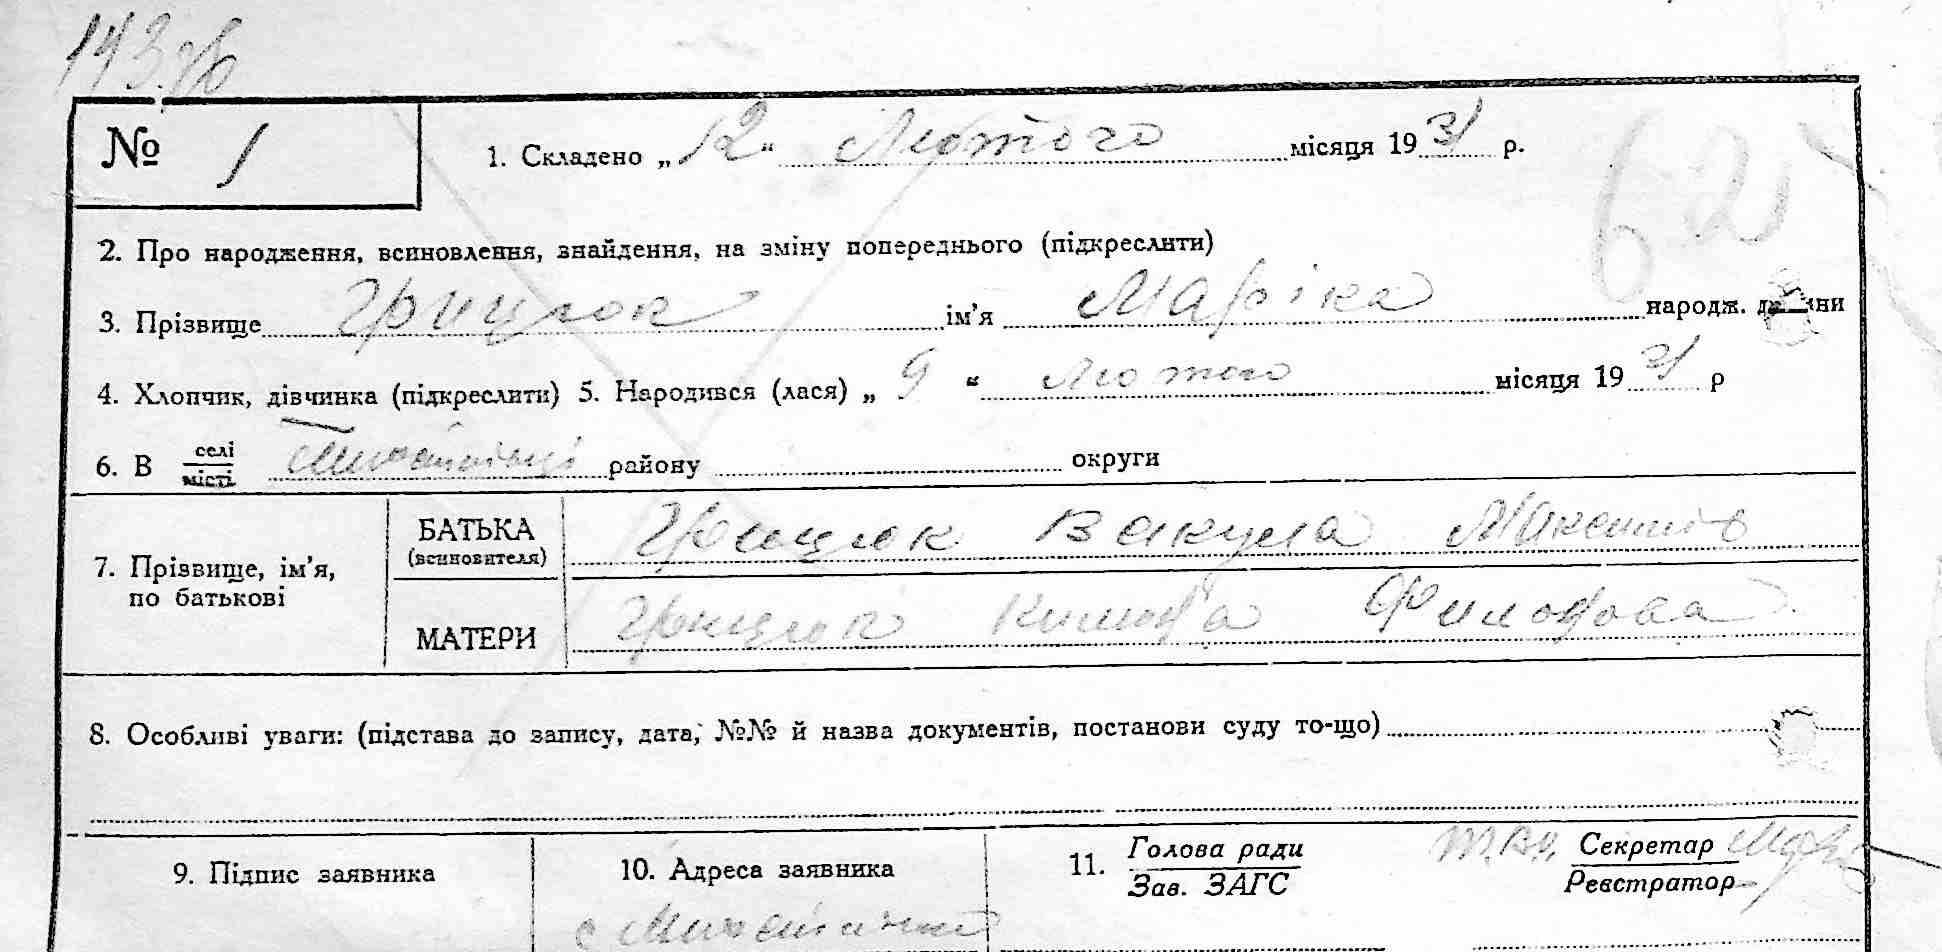 № 1
1. Складено „12“ Лютого місяця 1931 р.
2. Про народження, всиновлення, знайдення, на зміну попереднього (підкреслити)
3. Прізвище Грицюк ім'я Маріка народж. дитини
4. Хлопчик, дівчинка (підкреслити) 5. Народився (лася) „9“ Лютого місяця 1931 р
6. В селі місті району округи
7. Прізвище, ім'я, по батькові
БАТЬКА (всиновителя) Грицюк Вакула
МАТЕРИ Грицюк
8. Особливі уваги: (підстава до запису, дата, №№ й назва документів, постанови суду то-що)
9. Підпис заявника
10. Адреса заявника
с
11. Голова ради Секретар
Зав. ЗАГС Реєстратор
62